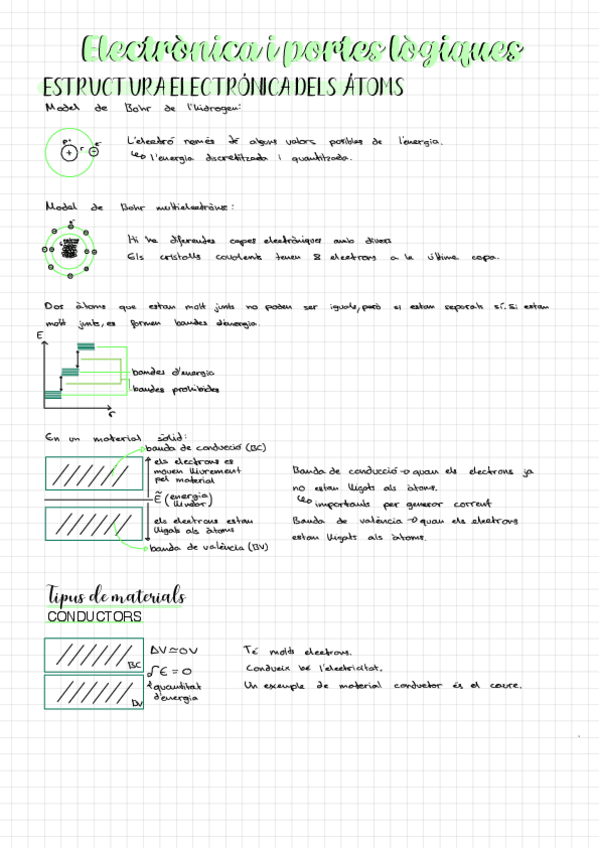 Electrònica i portes lògiques
ESTRUCTURA ELECTRÓNICA DELS ÁTOMS
Model de Bohr de l'hidrogen:
p+ r e-
+ -
L'electró només té alguns valors posibles de l'energia.
↳ l'energia discretitzada i quantitzada.
Model de Bohr multielectrònic:
Hi ha diferentes capes electròniques amb divers
Els cristalls covalents tenen 8 electrons a la última capa.
Dos àtoms que estan molt junts no poden ser iguals, però si estan separats sí. Si estan
molt junts, es formen bandes d'energia.
E
bandes d'energia
bandes prohibides
r
En un material sòlid:
banda de conducció (BC)
els electrons es
mouen lliurement
pel material
Ẽ (energia
llindar)
els electrons estan
lligats als àtoms
banda de valència (BV)
Banda de conducció → quan els electrons ja
no estan lligats als àtoms.
↳ importants per generar corrent
Banda de valència → quan els electrons
estan lligats als àtoms.
Tipus de materials
CONDUCTORS
BC
BV
ΔV≃0V
E = 0
quantitat
d'energia
Té molts electrons.
Condueix bé l'electricitat.
Un exemple de material conductor és el coure.